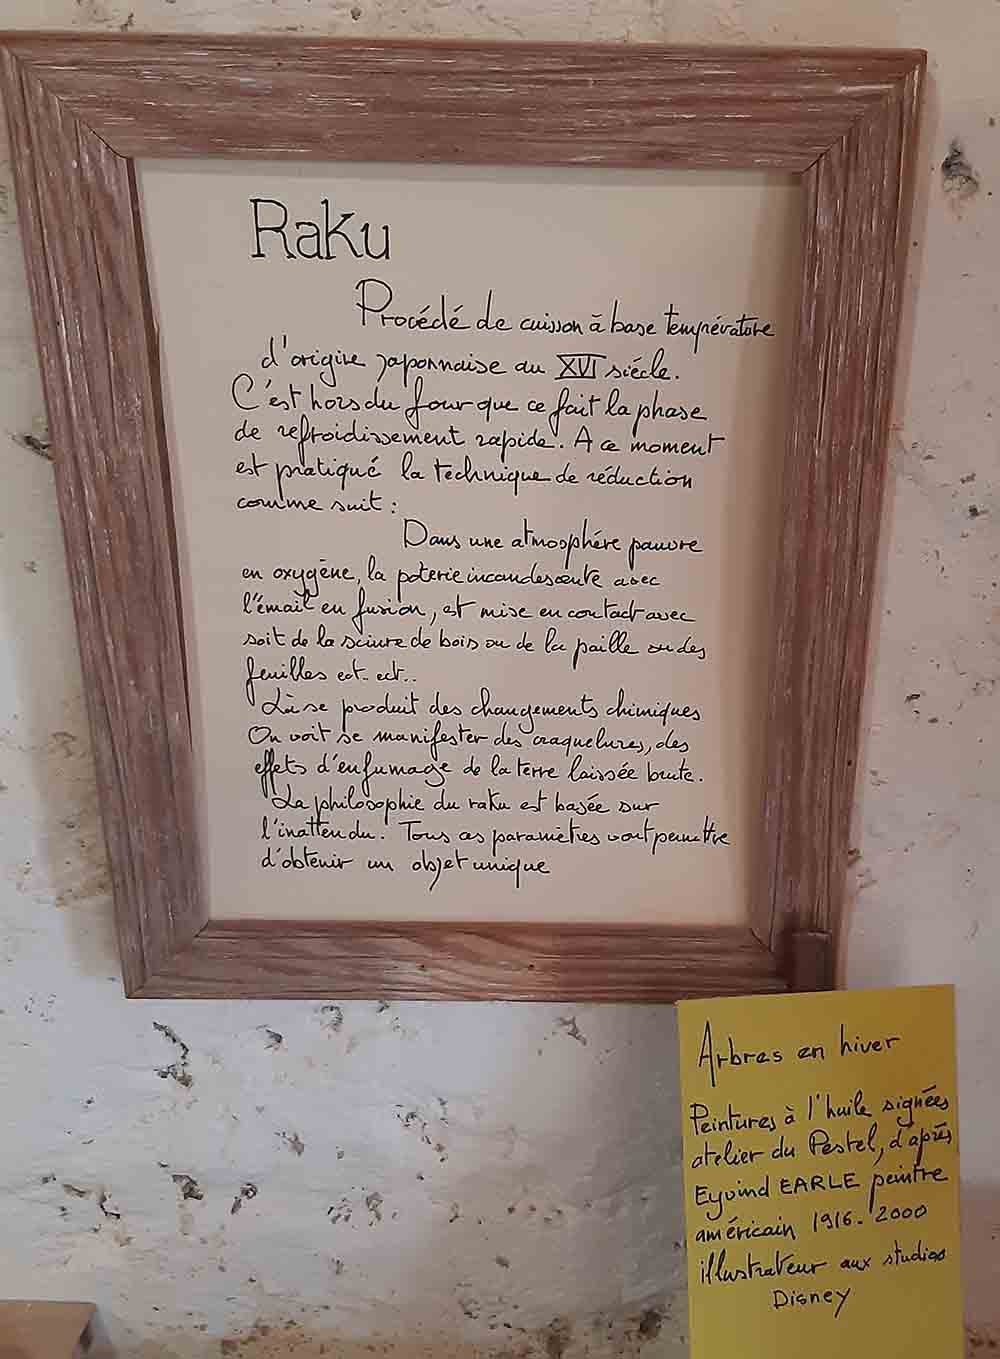 Raku
Procédé de cuisson à base température
d'origine japonnaise au XVI siécle.
C'est hors du four que ce fait la phase
de refroidissement rapide. A ce moment
est pratiqué la technique de réduction
comme suit :
Dans une atmosphére pauvre
en oxygène, la poterie incandescente avec
l'émail en fusion, est mise en contact avec
soit de la sciure de bois ou de la paille ou des
feuilles ect.. ect..
Là se produit des changements chimiques
On voit se manifester des craquelures, des
effets d'enfumage de la terre laissée brute.
La philosophie du raku est basée sur
l'inattendu. Tous ces paramètres vont permettre
d'obtenir un objet unique
Arbres en hiver
Peintures à l'huile signées
atelier du Pestel, d'aprés
Eyvind EARLE peintre
américain 1916-2000
illustrateur aux studios
Disney